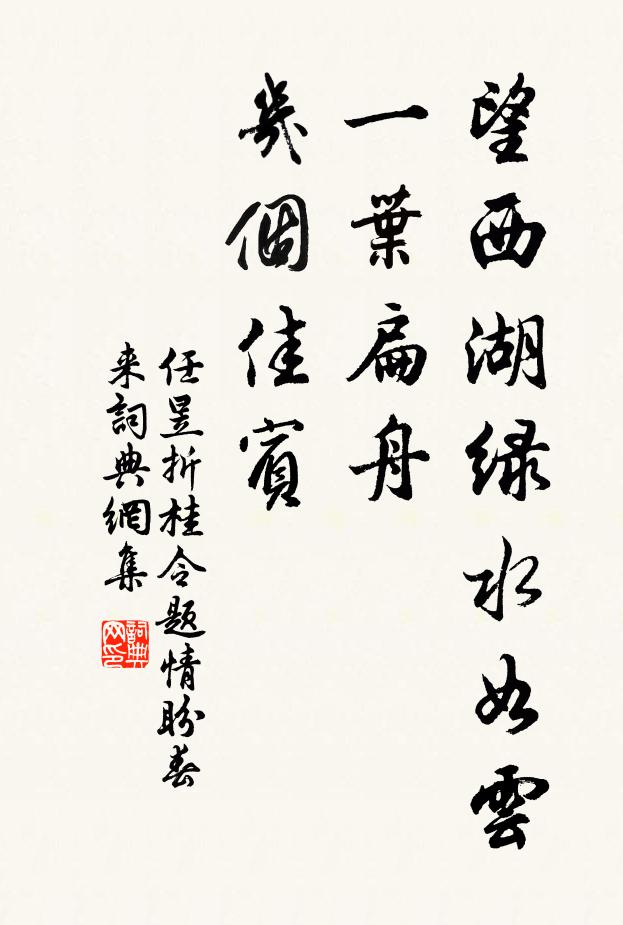 望西湖緑水如雲
一葉扁舟
幾個佳賓
任昱折桂令題情盼春
来詞典網集
詞典
网印